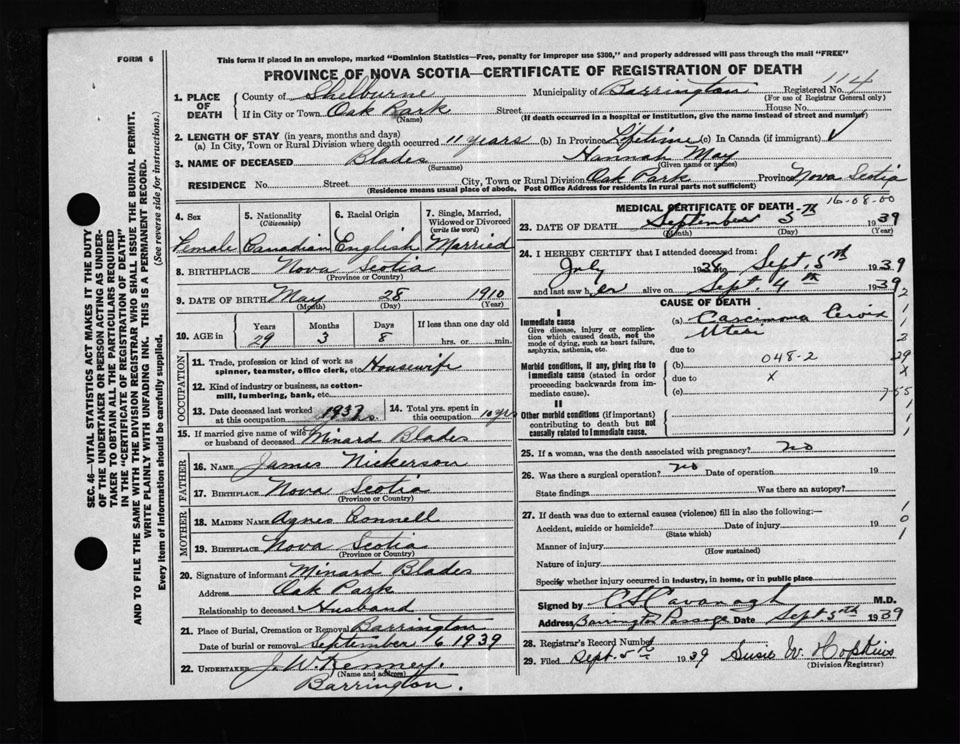 FORM 6
This form if placed in an envelope, marked "Dominion Statistics—Free, penalty for improper use $300," and properly addressed will pass through the mail "FREE"
PROVINCE OF NOVA SCOTIA—CERTIFICATE OF REGISTRATION OF DEATH
114
SEC. 46—VITAL STATISTICS ACT MAKES IT THE DUTY
OF THE UNDERTAKER OR PERSON ACTING AS UNDER-
TAKER TO OBTAIN ALL THE PARTICULARS REQUIRED
IN THE "CERTIFICATE OF REGISTRATION OF DEATH"
AND TO FILE THE SAME WITH THE DIVISION REGISTRAR WHO SHALL ISSUE THE BURIAL PERMIT.
WRITE PLAINLY WITH UNFADING INK. THIS IS A PERMANENT RECORD.
Every item of information should be carefully supplied. (See reverse side for instructions.)
1. PLACE OF DEATH County of Shelburne Municipality of Barrington Registered No.
(For use of Registrar General only)
If in City or Town Oak Park Street House No.
(Name) (If death occurred in a hospital or institution, give the name instead of street and number)
2. LENGTH OF STAY (in years, months and days)
(a) In City, Town or Rural Division where death occurred 11 years (b) In Province Lifetime (c) In Canada (if immigrant) ✓
3. NAME OF DECEASED Blades Hannah May
(Surname) (Given name or names)
RESIDENCE No. Street City, Town or Rural Division Oak Park Province Nova Scotia
(Residence means usual place of abode. Post Office Address for residents in rural parts not sufficient)
16-08-00
4. Sex 5. Nationality (Citizenship) 6. Racial Origin 7. Single, Married, Widowed or Divorced (write the word)
Female Canadian English Married
8. BIRTHPLACE Nova Scotia
(Province or Country)
9. DATE OF BIRTH May 28 1910
(Month) (Day) (Year)
10. AGE in Years Months Days If less than one day old
29 3 8 hrs. or min.
OCCUPATION
11. Trade, profession or kind of work as spinner, teamster, office clerk, etc. Housewife
12. Kind of industry or business, as cotton-mill, lumbering, bank, etc.
13. Date deceased last worked at this occupation 1937 14. Total yrs. spent in this occupation 10 yrs
15. If married give name of wife or husband of deceased Minard Blades
FATHER
16. NAME James Nickerson
17. BIRTHPLACE Nova Scotia
(Province or Country)
MOTHER
18. MAIDEN NAME Agnes Bonnell
19. BIRTHPLACE Nova Scotia
(Province or Country)
20. Signature of informant Minard Blades
Address Oak Park
Relationship to deceased Husband
21. Place of Burial, Cremation or Removal Barrington
Date of burial or removal September 6 1939
22. UNDERTAKER J. W. Kenney.
(Name and address)
Barrington.
MEDICAL CERTIFICATE OF DEATH
23. DATE OF DEATH September 5th 1939
(Month) (Day) (Year)
24. I HEREBY CERTIFY that I attended deceased from:
July 1938 to Sept. 5th 1939
and last saw her alive on Sept. 4th 1939
CAUSE OF DEATH
I
Immediate cause
Give disease, injury or complication which caused death, not the mode of dying, such as heart failure, asphyxia, asthenia, etc.
(a) Carcinoma Cervix
Uteri
due to
Morbid conditions, if any, giving rise to Immediate cause (stated in order proceeding backwards from immediate cause).
(b) 048-2
due to x
(c) 7-55
II
Other morbid conditions (if important) contributing to death but not causally related to Immediate cause.
2
1
1
2
29
X
1
1
1
25. If a woman, was the death associated with pregnancy? no
26. Was there a surgical operation? no Date of operation 19
State findings Was there an autopsy?
27. If death was due to external causes (violence) fill in also the following:—
Accident, suicide or homicide? Date of injury 19
(State which)
Manner of injury
(How sustained)
Nature of injury
Specify whether injury occurred in industry, in home, or in public place
1
0
1
Signed by C S Cavanagh M.D.
Address Barrington Passage Date Sept. 5th 1939
28. Registrar's Record Number
29. Filed Sept. 5th 1939 Susie W. Hopkins
(Division Registrar)